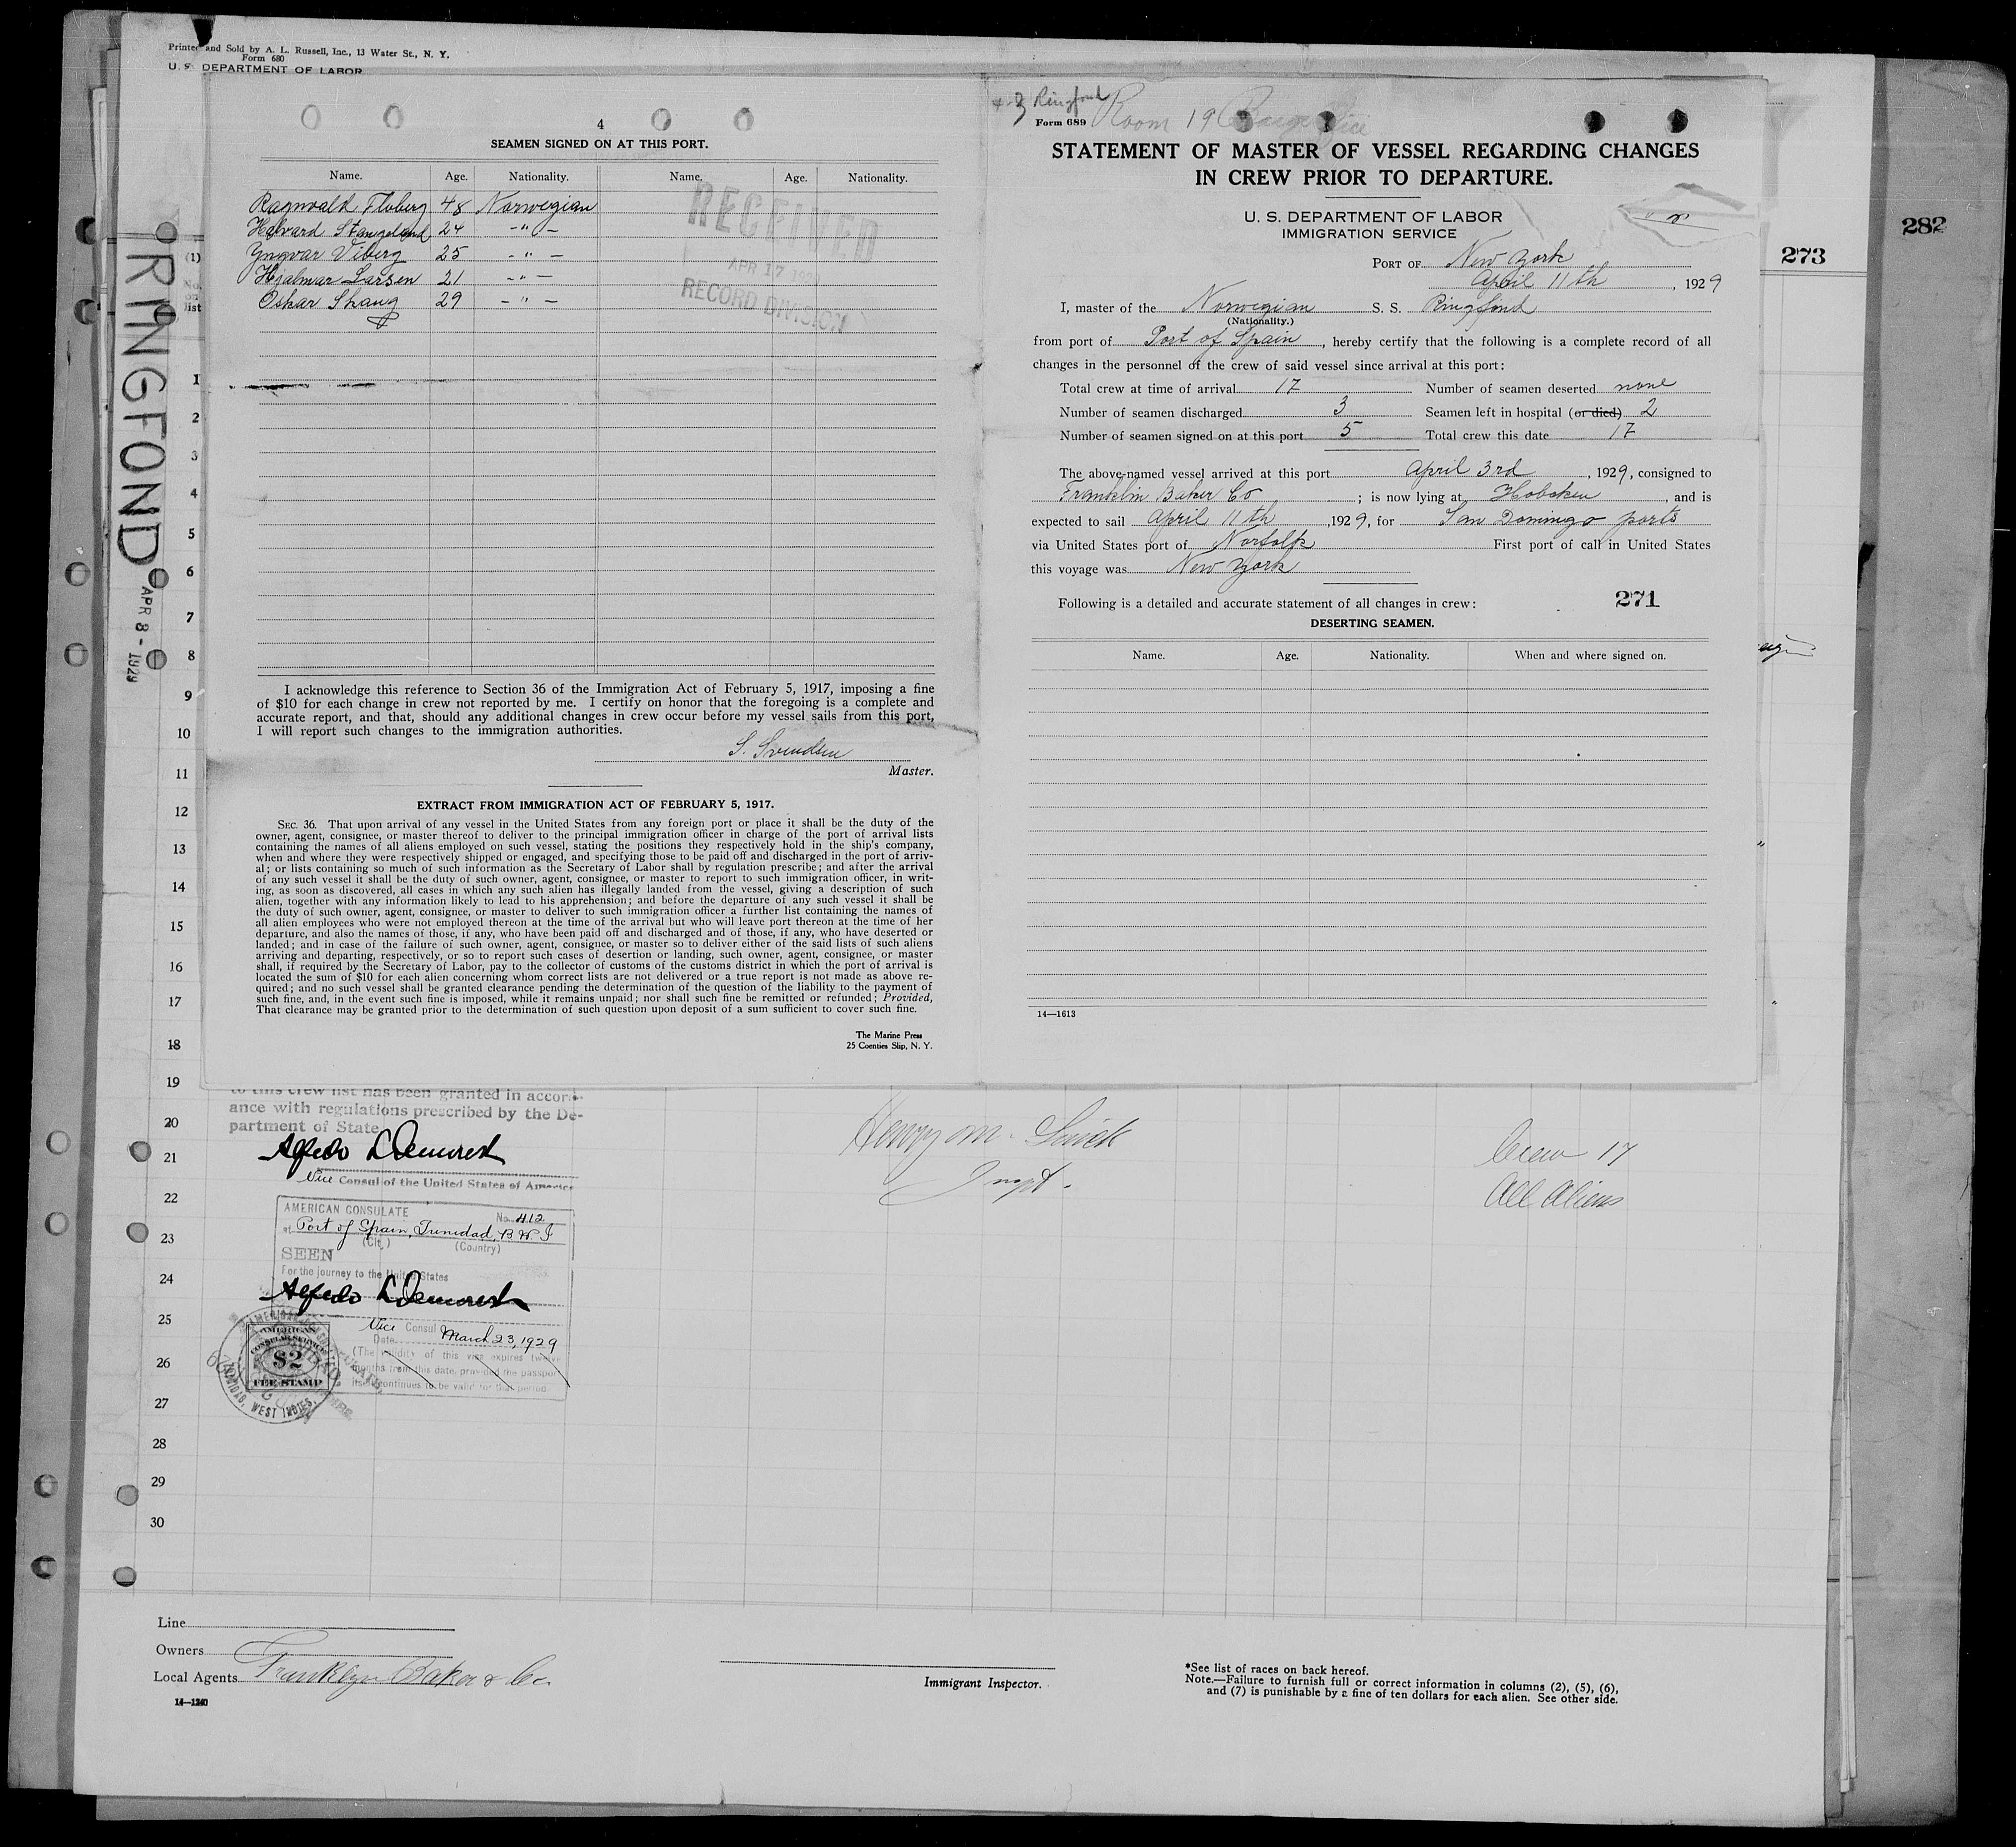 Printed and Sold by A. L. Russell, Inc., 13 Water St., N. Y.
Form 680
U. S. DEPARTMENT OF LABOR
RINGFOND
APR 8 - 1929
(1)
No.
on
list
1
2
3
4
5
6
7
8
9
10
11
12
13
14
15
16
17
18
19
20
21
22
23
24
25
26
27
28
29
30
4
SEAMEN SIGNED ON AT THIS PORT.
Name. Age. Nationality. Name. Age. Nationality.
Ragnvald Floberg 48 Norwegian
Halvard Stangeland 24 -"-
Yngvar Viberg 25 -"-
Hjalmar Larsen 21 -"-
Oskar Skaug 29 -"-
RECEIVED
APR 17 1929
RECORD DIVISION
I acknowledge this reference to Section 36 of the Immigration Act of February 5, 1917, imposing a fine
of $10 for each change in crew not reported by me. I certify on honor that the foregoing is a complete and
accurate report, and that, should any additional changes in crew occur before my vessel sails from this port,
I will report such changes to the immigration authorities.
S. Svendsen
Master.
EXTRACT FROM IMMIGRATION ACT OF FEBRUARY 5, 1917.
SEC. 36. That upon arrival of any vessel in the United States from any foreign port or place it shall be the duty of the
owner, agent, consignee, or master thereof to deliver to the principal immigration officer in charge of the port of arrival lists
containing the names of all aliens employed on such vessel, stating the positions they respectively hold in the ship's company,
when and where they were respectively shipped or engaged, and specifying those to be paid off and discharged in the port of arriv-
al; or lists containing so much of such information as the Secretary of Labor shall by regulation prescribe; and after the arrival
of any such vessel it shall be the duty of such owner, agent, consignee, or master to report to such immigration officer, in writ-
ing, as soon as discovered, all cases in which any such alien has illegally landed from the vessel, giving a description of such
alien, together with any information likely to lead to his apprehension; and before the departure of any such vessel it shall be
the duty of such owner, agent, consignee, or master to deliver to such immigration officer a further list containing the names of
all alien employees who were not employed thereon at the time of the arrival but who will leave port thereon at the time of her
departure, and also the names of those, if any, who have been paid off and discharged and of those, if any, who have deserted or
landed; and in case of the failure of such owner, agent, consignee, or master so to deliver either of the said lists of such aliens
arriving and departing, respectively, or so to report such cases of desertion or landing, such owner, agent, consignee, or master
shall, if required by the Secretary of Labor, pay to the collector of customs of the customs district in which the port of arrival is
located the sum of $10 for each alien concerning whom correct lists are not delivered or a true report is not made as above re-
quired; and no such vessel shall be granted clearance pending the determination of the question of the liability to the payment of
such fine, and, in the event such fine is imposed, while it remains unpaid; nor shall such fine be remitted or refunded; Provided,
That clearance may be granted prior to the determination of such question upon deposit of a sum sufficient to cover such fine.
The Marine Press
25 Coenties Slip, N. Y.
Ringfond
Form 689 Room 19 Barge Office
STATEMENT OF MASTER OF VESSEL REGARDING CHANGES
IN CREW PRIOR TO DEPARTURE.
U. S. DEPARTMENT OF LABOR
IMMIGRATION SERVICE
PORT OF New York
April 11th, 1929
I, master of the Norwegian S. S. Ringfond
(Nationality.)
from port of Port of Spain, hereby certify that the following is a complete record of all
changes in the personnel of the crew of said vessel since arrival at this port:
Total crew at time of arrival 17 Number of seamen deserted none
Number of seamen discharged 3 Seamen left in hospital (or died) 2
Number of seamen signed on at this port 5 Total crew this date 17
The above-named vessel arrived at this port April 3rd, 1929, consigned to
Franklin Baker Co; is now lying at Hoboken, and is
expected to sail April 11th, 1929, for San Domingo ports
via United States port of Norfolk First port of call in United States
this voyage was New York
Following is a detailed and accurate statement of all changes in crew: 271
DESERTING SEAMEN.
Name. Age. Nationality. When and where signed on.
14—1613
273
282
to this crew list has been granted in accord-
ance with regulations prescribed by the De-
partment of State
Alfredo L Demorest
Vice Consul of the United States of America
AMERICAN CONSULATE
No. 412
at Port of Spain, Trinidad, B.W.I
(City) (Country)
SEEN
For the journey to the United States
Alfredo L Demorest
Vice Consul
Date March 23, 1929
(The validity of this visa expires twelve
months from this date, provided the passport
itself continues to be valid for that period
AMERICAN
CONSULAR SERVICE
$2
FEE STAMP
TRINIDAD, WEST INDIES.
Henry M.
Inspt.
Crew 17
All Aliens
Line
Owners
Local Agents Franklyn Baker & Co.
14—1240
Immigrant Inspector.
*See list of races on back hereof.
Note.—Failure to furnish full or correct information in columns (2), (5), (6),
and (7) is punishable by a fine of ten dollars for each alien. See other side.